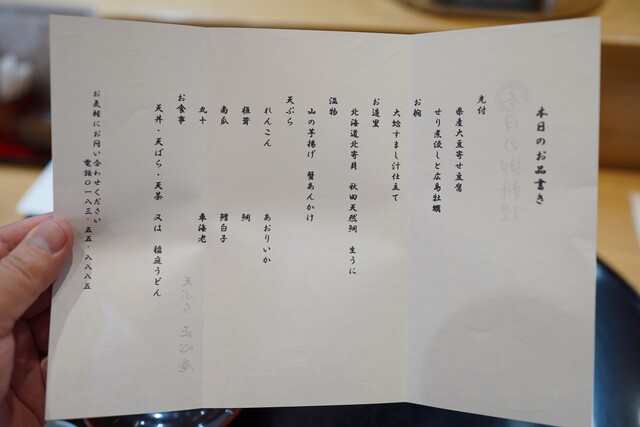 本日のお品書き
先付
県産大豆寄せ豆腐
せり煮浸しと広島牡蠣
お椀
大蛤すまし汁仕立て
お造里
北海道北寄貝 秋田天然鯛 生うに
温物
山の芋揚げ 蟹あんかけ
天ぷら
れんこん あおりいか
椎茸 鯛
南瓜 鱈白子
丸十 車海老
お食事
天丼・天ばら・天茶 又は 稲庭うどん
お気軽にお問い合わせください
電話〇一八三・五五・八八八五
本日の御料理
天ぷら 正心庵